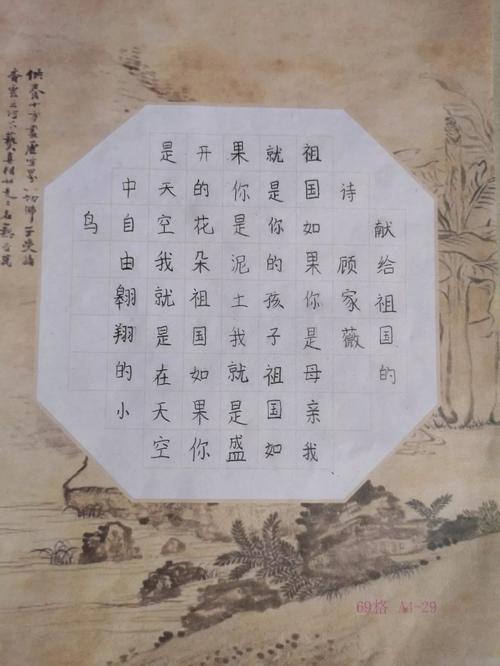 献给祖国的
待 顾家薇
祖国如果你是母亲我
就是你的孩子祖国如
果你是泥土我就是盛
开的花朵祖国如果你
是天空我就是在天空
中自由翱翔的小
鸟
69格 A4-29